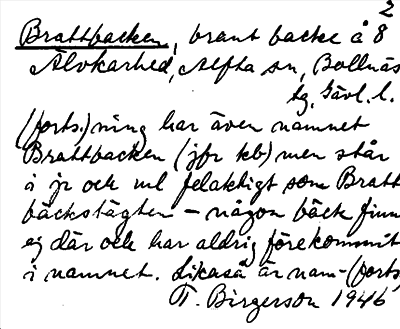 2
Brattbacken, brant backe å 8
Älvkarhed, Alfta sn, Bollnäs
tg, Gävl. l.
(forts.) ning har även namnet
Brattbacken (jfr kb) men står
å jr och ul felaktigt som Bratt
bäckstägten – någon bäck finn
ej där och har aldrig förekommit
i namnet. Likaså är nam-(forts
T. Birgerson 1946